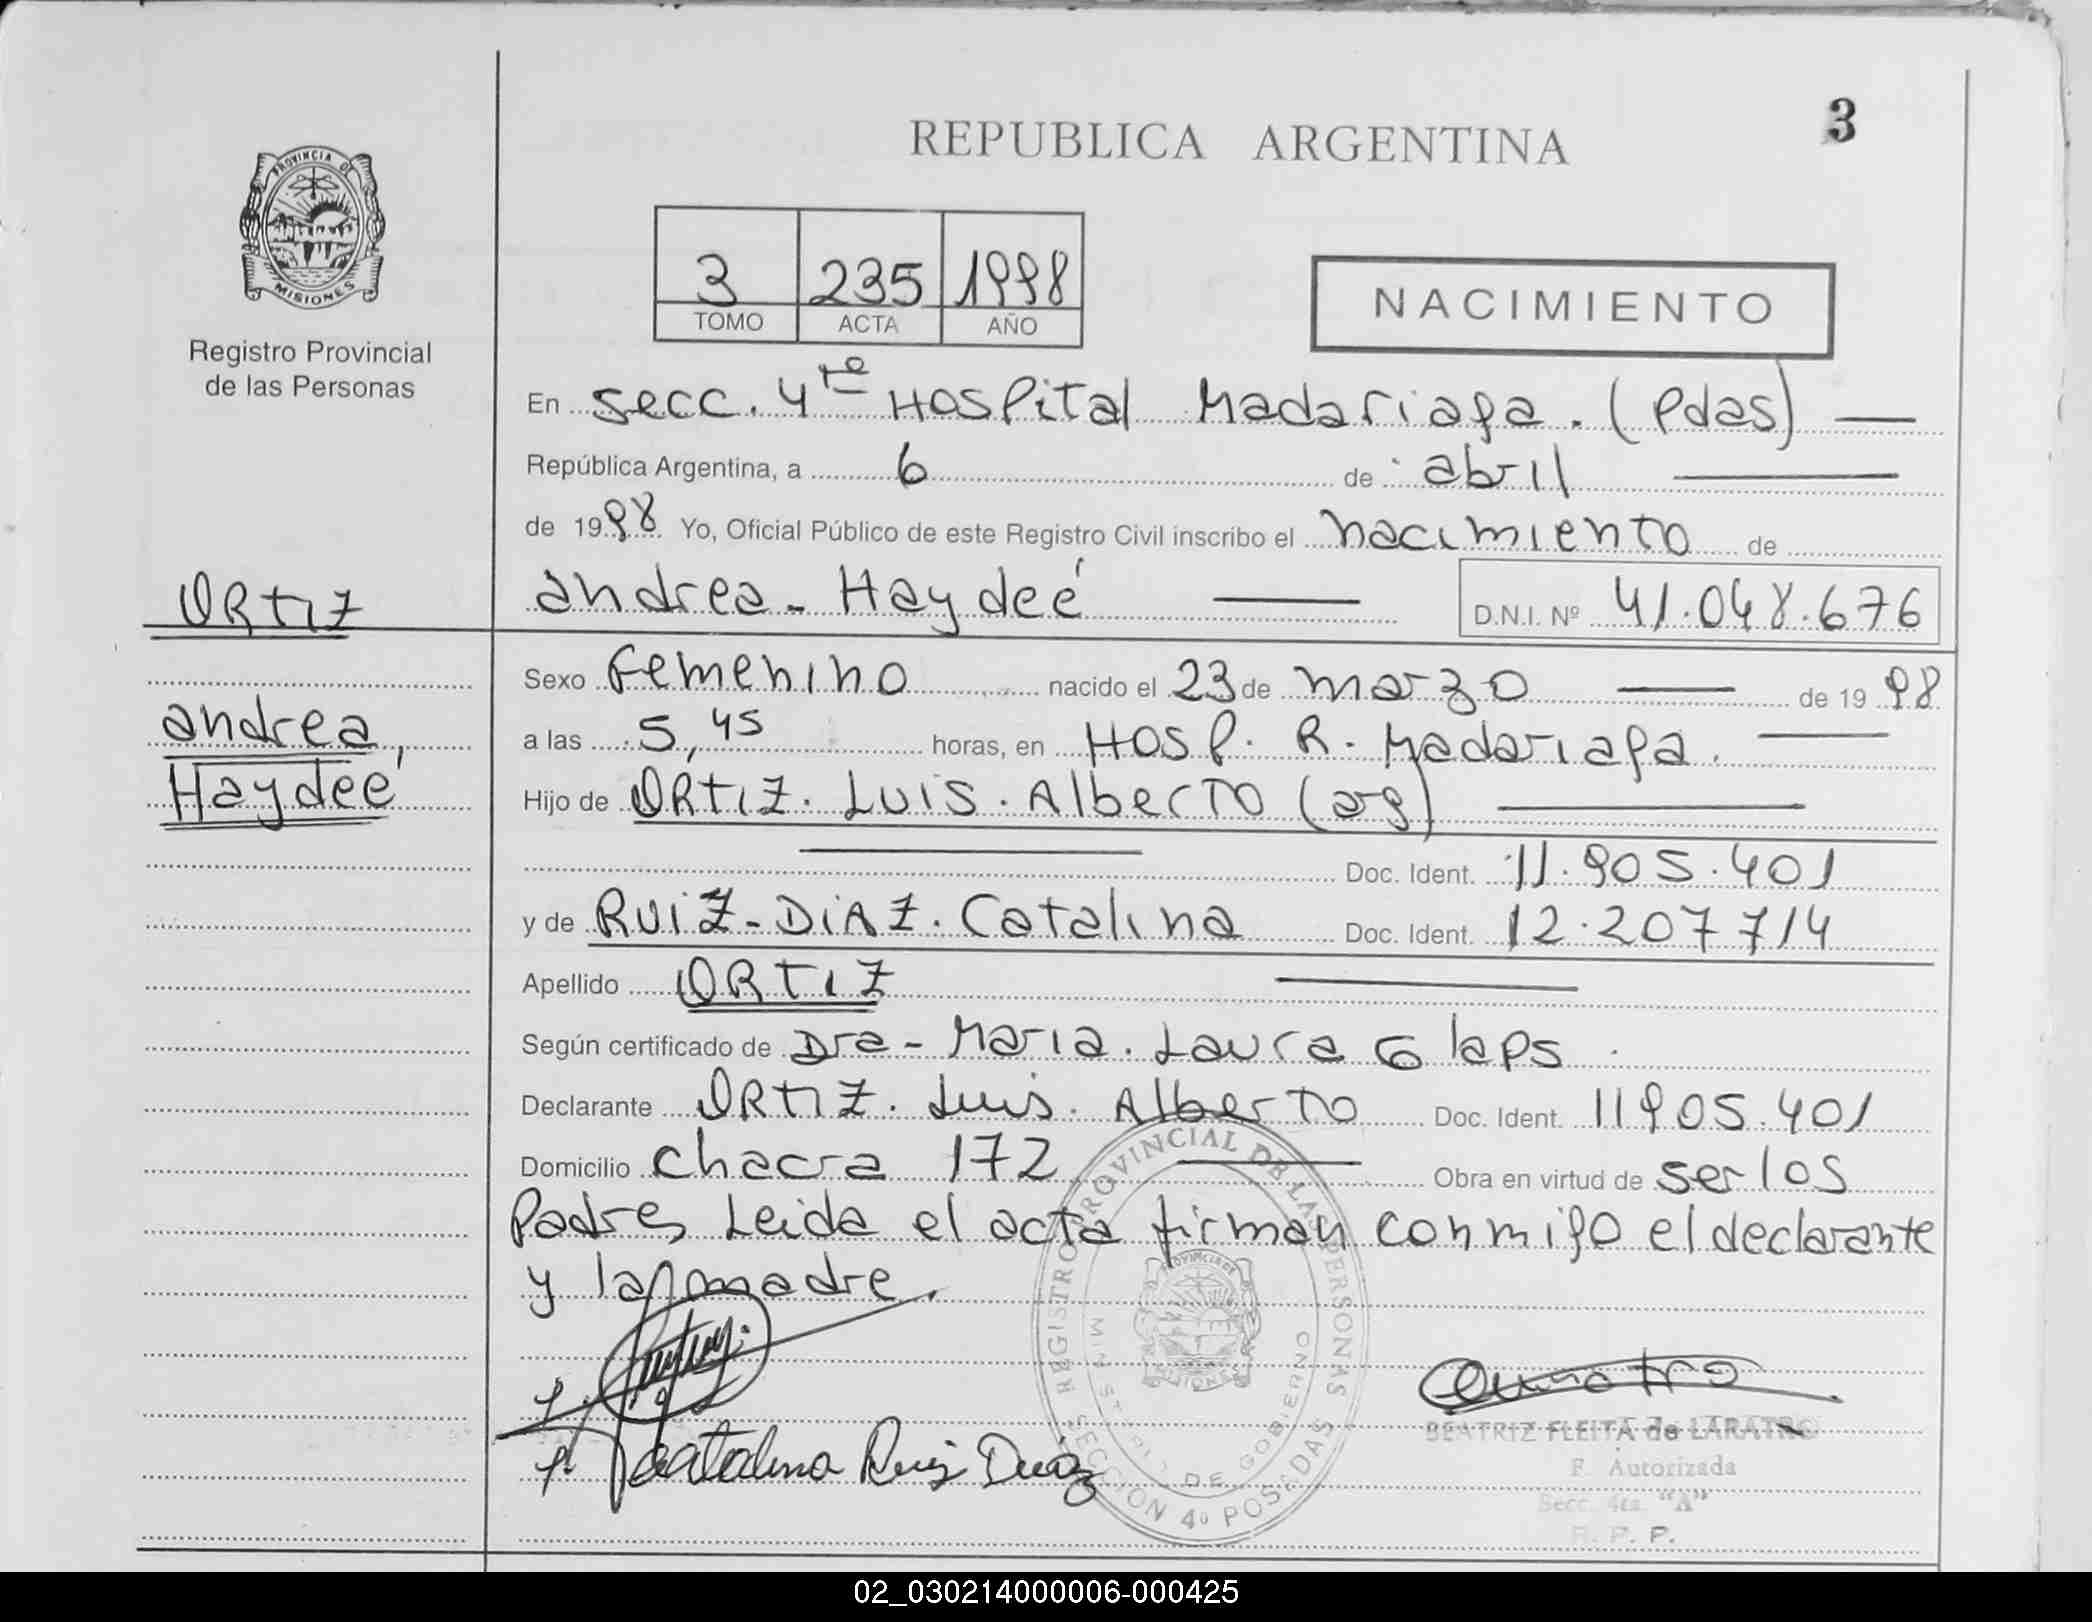 REPUBLICA ARGENTINA
3
PROVINCIA DE
MISIONES
Registro Provincial
de las Personas
3 235 1998
TOMO ACTA AÑO
NACIMIENTO
En Secc. 4ta Hospital Madariaga. (Pdas)
República Argentina, a 6 de abril
de 1998 Yo, Oficial Público de este Registro Civil inscribo el nacimiento de
ORTIZ
andrea - Haydeé D.N.I. Nº 41.048.676
Sexo Femenino nacido el 23 de marzo de 1998
andrea,
a las 5,45 horas, en Hosp. R. Madariaga.
Haydeé
Hijo de ORTIZ. LUIS. Alberto (arg)
Doc. Ident. 11.905.401
y de RUIZ - DIAZ. Catalina Doc. Ident. 12.207714
Apellido ORTIZ
Según certificado de Dra - Maria. Laura
Declarante ORTIZ. Luis. Alberto Doc. Ident. 11905.401
Domicilio chacra 172 Obra en virtud de ser los
Padres Leida el acta firman conmigo el declarante
y la madre.
Catalina Ruiz Diaz
REGISTRO PROVINCIAL DE LAS PERSONAS
MINISTERIO DE GOBIERNO
SECCION 4º POSADAS
BEATRIZ FLEITA de LARATRO
F. Autorizada
Secc. 4ta. "A"
R. P. P.
02_030214000006-000425